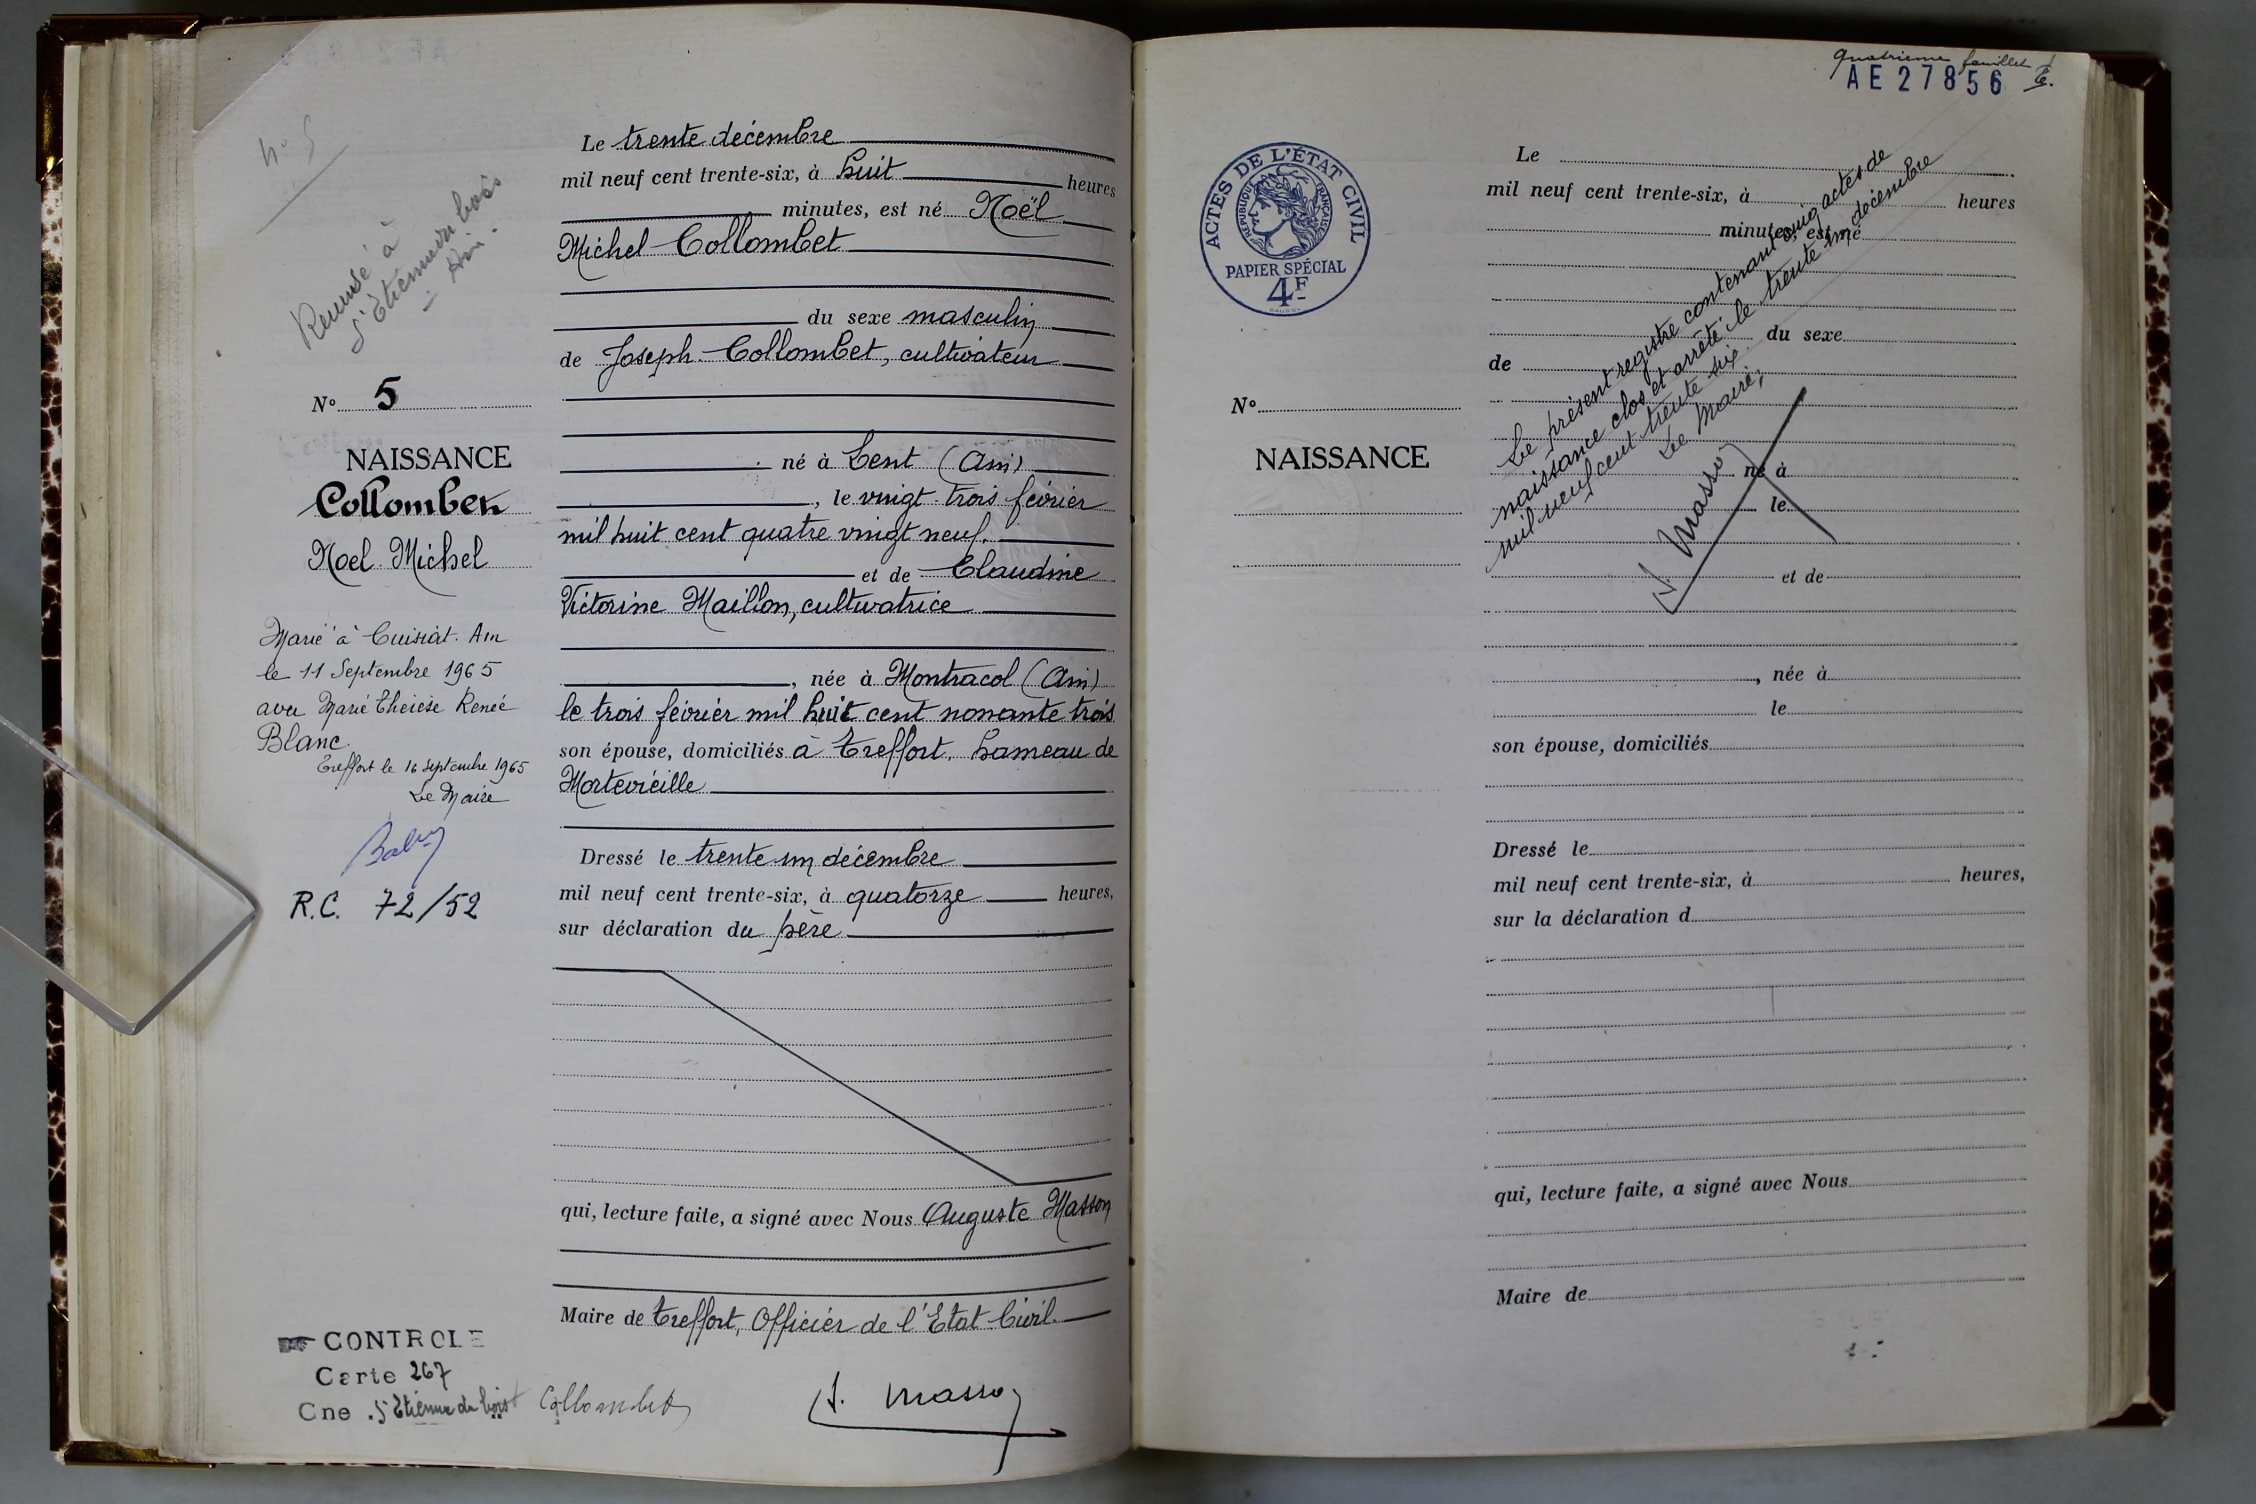 N° 5
Recensé à
St Etienne du bois
- Ain -
N° 5
NAISSANCE
Collombet
Noel Michel
Marié à Cuisiat. Ain
le 11 Septembre 1965
avec Marie Thérèse Renée
Blanc
Treffort le 16 Septembre 1965
Le Maire
R.C. 72/52
CONTROLE
Carte 267
Cne St Etienne du bois
Le trente décembre
mil neuf cent trente-six, à huit heures
minutes, est né Noël
Michel Collombet
du sexe masculin
de Joseph Collombet, cultivateur
né à Lent (Ain)
, le vingt-trois février
mil huit cent quatre vingt neuf.
et de Claudine
Victorine Maillon, cultivatrice
, née à Montracol (Ain)
le trois février mil huit cent nonante trois
son épouse, domiciliés à Treffort, hameau de
Mortevieille
Dressé le trente un décembre
mil neuf cent trente-six, à quatorze heures,
sur déclaration du père
qui, lecture faite, a signé avec Nous Auguste Masson
Maire de Treffort, Officier de l'Etat Civil.
Collombet
A. Masson
quatrième feuillet
AE27856
ACTES DE L'ÉTAT CIVIL
RÉPUBLIQUE FRANÇAISE
PAPIER SPÉCIAL
4F
N°
NAISSANCE
Le
mil neuf cent trente-six, à heures
minutes, est né
du sexe
de
né à
le
et de
, née à
le
son épouse, domiciliés
Dressé le
mil neuf cent trente-six, à heures,
sur la déclaration d
qui, lecture faite, a signé avec Nous
Maire de
Le présent registre contenant cinq actes de
naissance clos et arrêté le trente un décembre
mil neuf cent trente six.
Le Maire,
A. Masson